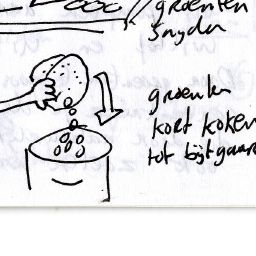 groenten
snyden
groenten
kort koken
tot bijtgaar